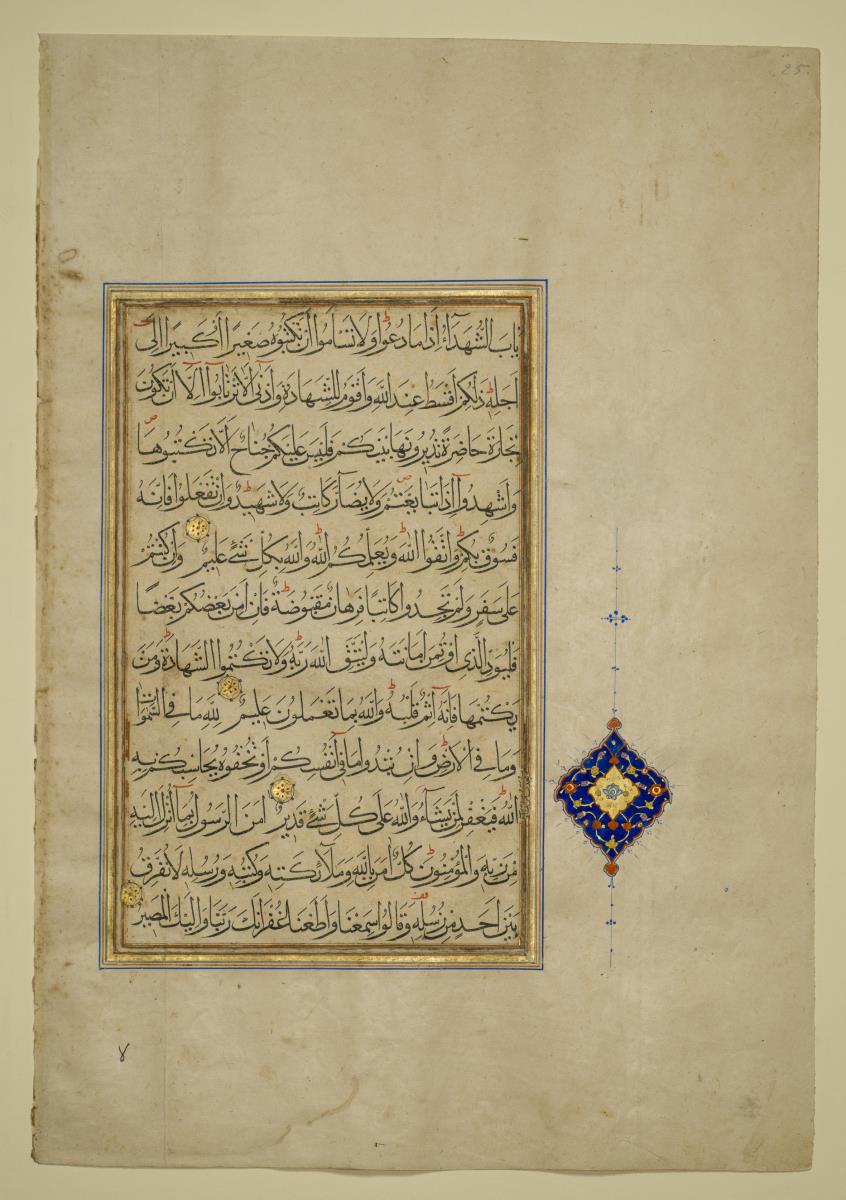 يَابَ الشُّهَدَآءُ اِذَا مَا دُعُوا وَلَا تَسْاَمُوا اَنْ تَكْتُبُوهُ صَغِيرًا اَوْ كَبِيرًا اِلَى
اَجَلِهِ ذَلِكُمْ اَقْسَطُ عِنْدَ اللَّهِ وَاَقْوَمُ لِلشَّهَادَةِ وَاَدْنَى اَلَّا تَرْتَابُوا اِلَّا اَنْ تَكُونَ
تِجَارَةً حَاضِرَةً تُدِيرُونَهَا بَيْنَكُمْ فَلَيْسَ عَلَيْكُمْ جُنَاحٌ اَلَّا تَكْتُبُوهَا
وَاَشْهِدُوا اِذَا تَبَايَعْتُمْ وَلَا يُضَآرَّ كَاتِبٌ وَلَا شَهِيدٌ وَاِنْ تَفْعَلُوا فَاِنَّهُ
فُسُوقٌ بِكُمْ وَاتَّقُوا اللَّهَ وَيُعَلِّمُكُمُ اللَّهُ وَاللَّهُ بِكُلِّ شَيْءٍ عَلِيمٌ وَاِنْ كُنْتُمْ
عَلَى سَفَرٍ وَلَمْ تَجِدُوا كَاتِبًا فَرِهَانٌ مَقْبُوضَةٌ فَاِنْ اَمِنَ بَعْضُكُمْ بَعْضًا
فَلْيُؤَدِّ الَّذِي اؤْتُمِنَ اَمَانَتَهُ وَلْيَتَّقِ اللَّهَ رَبَّهُ وَلَا تَكْتُمُوا الشَّهَادَةَ وَمَنْ
يَكْتُمْهَا فَاِنَّهُ آثِمٌ قَلْبُهُ وَاللَّهُ بِمَا تَعْمَلُونَ عَلِيمٌ لِلَّهِ مَا فِي السَّمَوَاتِ
وَمَا فِي الْاَرْضِ وَاِنْ تُبْدُوا مَا فِي اَنْفُسِكُمْ اَوْ تُخْفُوهُ يُحَاسِبْكُمْ بِهِ
اللَّهُ فَيَغْفِرُ لِمَنْ يَشَآءُ وَاللَّهُ عَلَى كُلِّ شَيْءٍ قَدِيرٌ اَمَنَ الرَّسُولُ بِمَا اُنْزِلَ اِلَيْهِ
مِنْ رَبِّهِ وَالْمُؤْمِنُونَ كُلٌّ اَمَنَ بِاللَّهِ وَمَلَائِكَتِهِ وَكُتُبِهِ وَرُسُلِهِ لَا نُفَرِّقُ
بَيْنَ اَحَدٍ مِنْ رُسُلِهِ وَقَالُوا سَمِعْنَا وَاَطَعْنَا غُفْرَانَكَ رَبَّنَا وَاِلَيْكَ الْمَصِيرُ